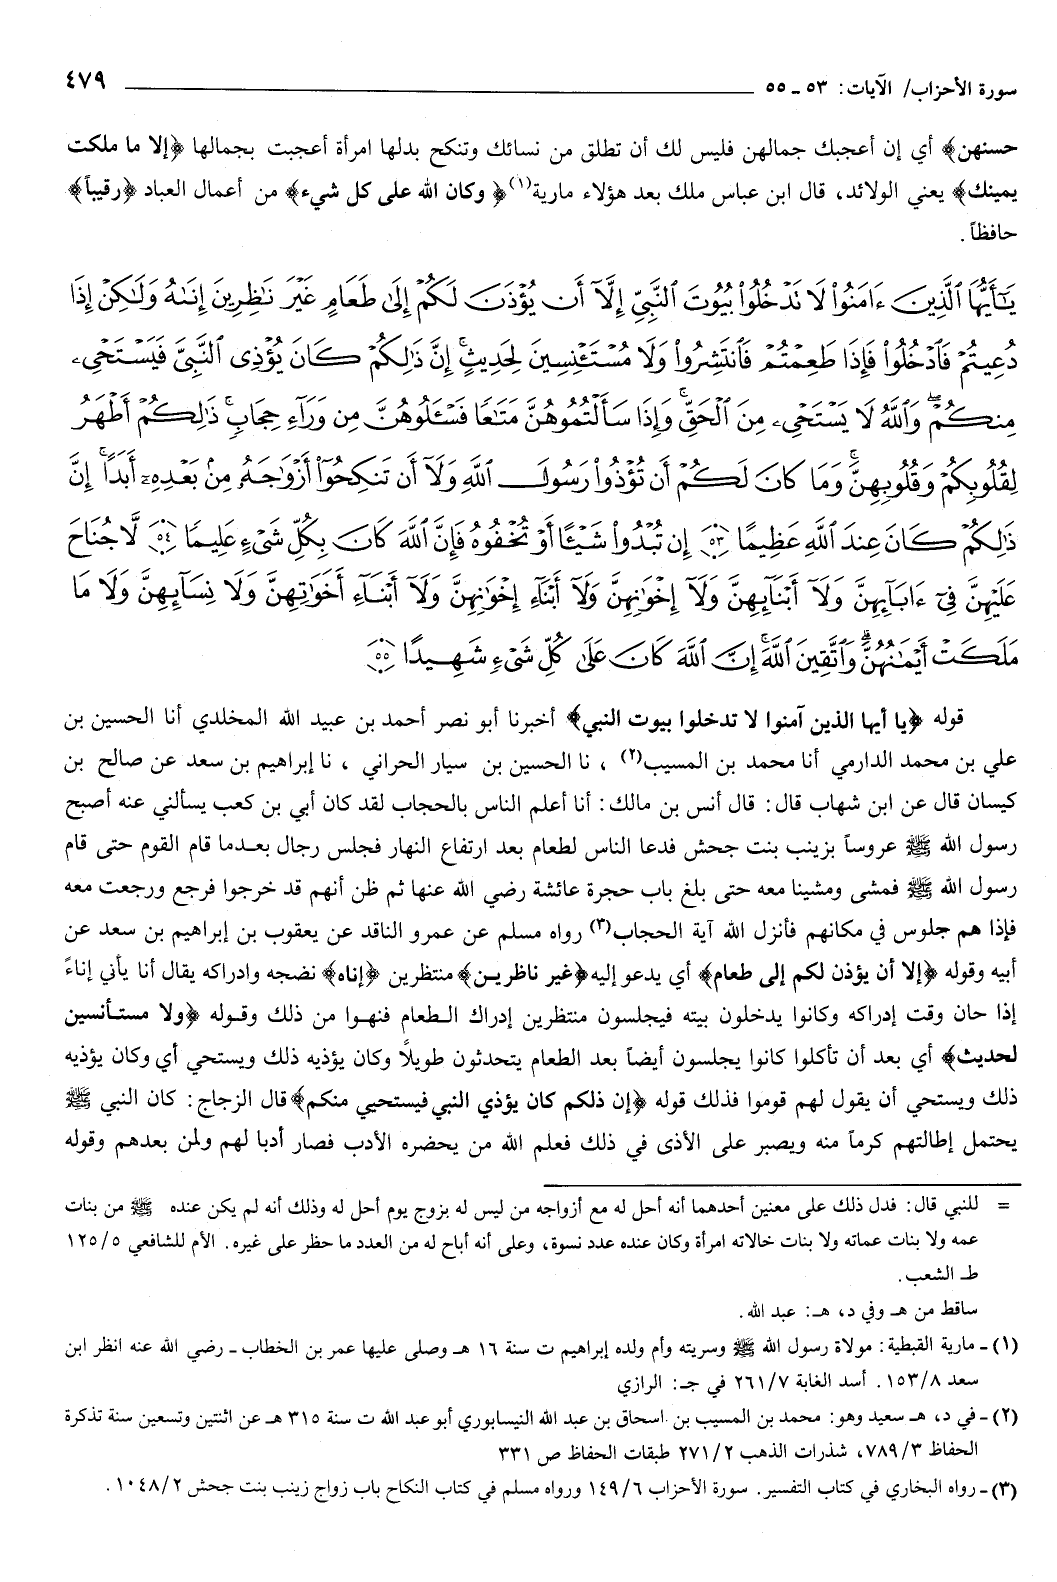 سورة الأحزاب/ الآيات: ٥٣ ـ ٥٥ ٤٧٩
حسنهن﴾ أي إن أعجبك جمالهن فليس لك أن تطلق من نسائك وتنكح بدلها امرأة أعجبت بجمالها ﴿إلا ما ملكت
يمينك﴾ يعني الولائد، قال ابن عباس ملك بعد هؤلاء مارية(١) ﴿ وكان الله على كل شيء﴾ من أعمال العباد ﴿رقيباً﴾
حافظاً.
يَٰٓأَيُّهَا ٱلَّذِينَ ءَامَنُوا۟ لَا تَدْخُلُوا۟ بُيُوتَ ٱلنَّبِىِّ إِلَّآ أَن يُؤْذَنَ لَكُمْ إِلَىٰ طَعَامٍ غَيْرَ نَٰظِرِينَ إِنَىٰهُ وَلَٰكِنْ إِذَا
دُعِيتُمْ فَٱدْخُلُوا۟ فَإِذَا طَعِمْتُمْ فَٱنتَشِرُوا۟ وَلَا مُسْتَـْٔنِسِينَ لِحَدِيثٍ ۚ إِنَّ ذَٰلِكُمْ كَانَ يُؤْذِى ٱلنَّبِىَّ فَيَسْتَحْىِۦ
مِنكُمْ ۖ وَٱللَّهُ لَا يَسْتَحْىِۦ مِنَ ٱلْحَقِّ ۚ وَإِذَا سَأَلْتُمُوهُنَّ مَتَٰعًا فَسْـَٔلُوهُنَّ مِن وَرَآءِ حِجَابٍ ۚ ذَٰلِكُمْ أَطْهَرُ
لِقُلُوبِكُمْ وَقُلُوبِهِنَّ ۚ وَمَا كَانَ لَكُمْ أَن تُؤْذُوا۟ رَسُولَ ٱللَّهِ وَلَآ أَن تَنكِحُوٓا۟ أَزْوَٰجَهُۥ مِنۢ بَعْدِهِۦٓ أَبَدًا ۚ إِنَّ
ذَٰلِكُمْ كَانَ عِندَ ٱللَّهِ عَظِيمًا ٥٣ إِن تُبْدُوا۟ شَيْـًٔا أَوْ تُخْفُوهُ فَإِنَّ ٱللَّهَ كَانَ بِكُلِّ شَىْءٍ عَلِيمًا ٥٤ لَّا جُنَاحَ
عَلَيْهِنَّ فِىٓ ءَابَآئِهِنَّ وَلَآ أَبْنَآئِهِنَّ وَلَآ إِخْوَٰنِهِنَّ وَلَآ أَبْنَآءِ إِخْوَٰنِهِنَّ وَلَآ أَبْنَآءِ أَخَوَٰتِهِنَّ وَلَا نِسَآئِهِنَّ وَلَا مَا
مَلَكَتْ أَيْمَٰنُهُنَّ ۗ وَٱتَّقِينَ ٱللَّهَ ۚ إِنَّ ٱللَّهَ كَانَ عَلَىٰ كُلِّ شَىْءٍ شَهِيدًا ٥٥
قوله ﴿يا أيها الذين آمنوا لا تدخلوا بيوت النبي﴾ أخبرنا أبو نصر أحمد بن عبيد الله المخلدي أنا الحسين بن
علي بن محمد الدارمي أنا محمد بن المسيب(٢) ، نا الحسين بن سيار الحراني ، نا إبراهيم بن سعد عن صالح بن
كيسان قال عن ابن شهاب قال: قال أنس بن مالك: أنا أعلم الناس بالحجاب لقد كان أبي بن كعب يسألني عنه أصبح
رسول الله ﷺ عروساً بزينب بنت جحش فدعا الناس لطعام بعد ارتفاع النهار فجلس رجال بعدما قام القوم حتى قام
رسول الله ﷺ فمشى ومشينا معه حتى بلغ باب حجرة عائشة رضي الله عنها ثم ظن أنهم قد خرجوا فرجع ورجعت معه
فإذا هم جلوس في مكانهم فأنزل الله آية الحجاب(٣) رواه مسلم عن عمرو الناقد عن يعقوب بن إبراهيم بن سعد عن
أبيه وقوله ﴿إلا أن يؤذن لكم إلى طعام﴾ أي يدعو إليه ﴿غير ناظرين﴾ منتظرين ﴿إناه﴾ نضجه وادراكه يقال أنا يأني إناءً
إذا حان وقت إدراكه وكانوا يدخلون بيته فيجلسون منتظرين إدراك الطعام فنهوا من ذلك وقوله ﴿ولا مستأنسين
لحديث﴾ أي بعد أن تأكلوا كانوا يجلسون أيضاً بعد الطعام يتحدثون طويلاً وكان يؤذيه ذلك ويستحي أي وكان يؤذيه
ذلك ويستحي أن يقول لهم قوموا فذلك قوله ﴿إن ذلكم كان يؤذي النبي فيستحيي منكم﴾ قال الزجاج: كان النبي ﷺ
يحتمل إطالتهم كرماً منه ويصبر على الأذى في ذلك فعلم الله من يحضره الأدب فصار أدبا لهم ولمن بعدهم وقوله
= للنبي قال: فدل ذلك على معنين أحدهما أنه أحل له مع أزواجه من ليس له بزوج يوم أحل له وذلك أنه لم يكن عنده ﷺ من بنات
عمه ولا بنات عماته ولا بنات خالاته امرأة وكان عنده عدد نسوة، وعلى أنه أباح له من العدد ما حظر على غيره. الأم للشافعي ١٢٥/٥
طـ الشعب.
ساقط من هـ وفي د، هـ: عبد الله.
(١) ـ مارية القبطية: مولاة رسول الله ﷺ وسريته وأم ولده إبراهيم ت سنة ١٦ هـ وصلى عليها عمر بن الخطاب ـ رضي الله عنه انظر ابن
سعد ١٥٣/٨. أسد الغابة ٢٦١/٧ في جـ: الرازي
(٢) ـ في د، هـ سعيد وهو: محمد بن المسيب بن اسحاق بن عبد الله النيسابوري أبو عبد الله ت سنة ٣١٥ هـ عن اثنتين وتسعين سنة تذكرة
الحفاظ ٧٨٩/٣، شذرات الذهب ٢٧١/٢ طبقات الحفاظ ص ٣٣١
(٣) ـ رواه البخاري في كتاب التفسير. سورة الأحزاب ١٤٩/٦ ورواه مسلم في كتاب النكاح باب زواج زينب بنت جحش ١٠٤٨/٢.